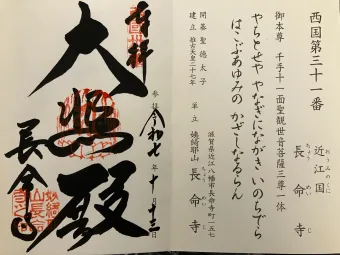 西国第三十一番
近江国
おうみのくに
長命寺
ちょうめいじ
御本尊 千手十一面聖観世音菩薩三尊一体
やちとせや やなぎにながき いのちでら
はこぶあゆみの かざしなるらん
開基 聖徳太子
建立 推古天皇二十七年
滋賀県近江八幡市長命寺町一五七
単立 姨綺耶山 長命寺
奉拝
大悲殿
参拝 令和七年十月十三日
長命寺